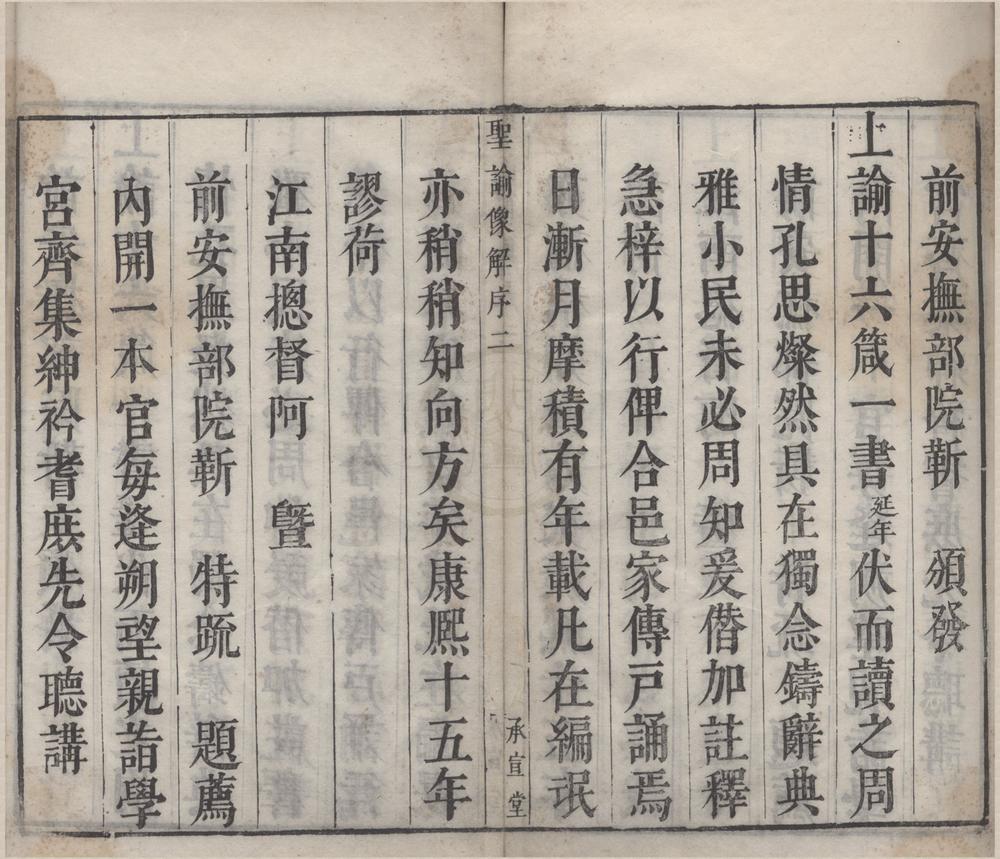 前安撫部院靳　頒發
上諭十六箴一書延年伏而讀之周
情孔思燦然具在獨念鑄辭典
雅小民未必周知爰僭加註釋
急梓以行俾合邑家傳戸誦焉
日漸月摩積有年載凡在編氓
聖諭像解序二
承宣堂
亦稍稍知向方矣康熈十五年
謬荷
江南摠督阿　曁
前安撫部院靳　特疏　題薦
內開一本官每逢朔望親詣學
宮齊集紳衿耆庶先令聽講